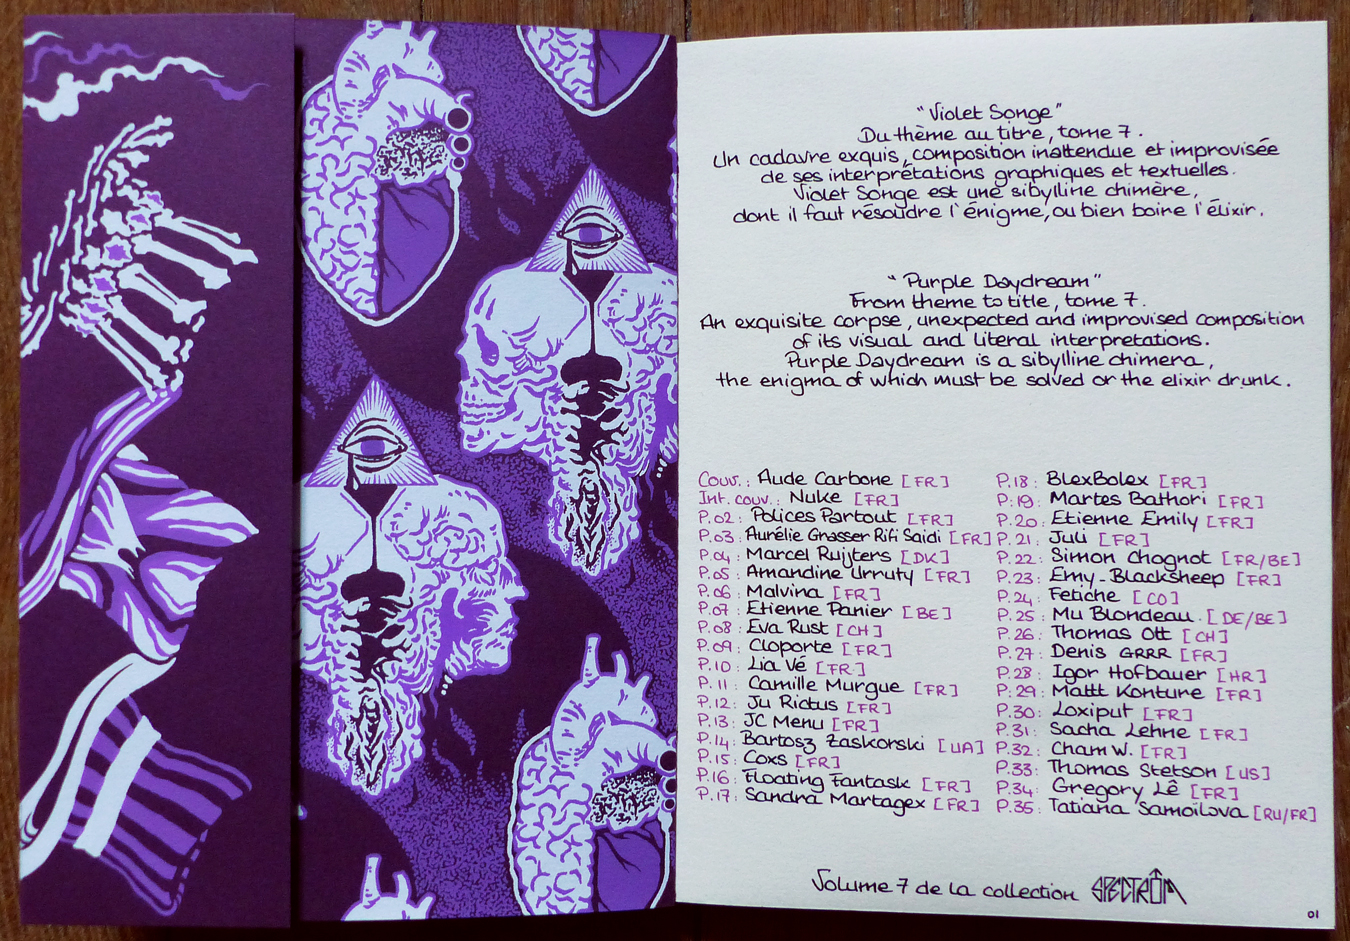 “Violet Songe”
Du thème au titre, tome 7.
Un cadavre exquis, composition inattendue et improvisée
de ses interprétations graphiques et textuelles.
Violet Songe est une sibylline chimère,
dont il faut résoudre l'énigme, ou bien boire l'élixir.
“Purple Daydream”
From theme to title, tome 7.
An exquisite corpse, unexpected and improvised composition
of its visual and literal interpretations.
Purple Daydream is a sibylline chimera,
the enigma of which must be solved or the elixir drunk.
Couv.: Aude Carbone [FR]
Int. couv.: Nuke [FR]
P.02: Polices Partout [FR]
P.03: Aurélie Grasser Rifi Saidi [FR]
P.04: Marcel Ruijters [DK]
P.05: Amandine Urruty [FR]
P.06: Malvina [FR]
P.07: Etienne Panier [BE]
P.08: Eva Rust [CH]
P.09: Cloporte [FR]
P.10: Lia Vé [FR]
P.11: Camille Murgue [FR]
P.12: Ju Rictus [FR]
P.13: JC Menu [FR]
P.14: Bartosz Zaskorski [UA]
P.15: Coxs [FR]
P.16: Floating Fantask [FR]
P.17: Sandra Martagex [FR]
P.18: BlexBolex [FR]
P.19: Martes Bathori [FR]
P.20: Etienne Emily [FR]
P.21: Juli [FR]
P.22: Simon Chognot [FR/BE]
P.23: Emy-Blacksheep [FR]
P.24: Fetiche [CO]
P.25: Mu Blondeau [DE/BE]
P.26: Thomas Ott [CH]
P.27: Denis GRRR [FR]
P.28: Igor Hofbauer [HR]
P.29: Matt Konture [FR]
P.30: Loxiput [FR]
P.31: Sacha Lehne [FR]
P.32: Cham W. [FR]
P.33: Thomas Stetson [US]
P.34: Gregory Lê [FR]
P.35: Tatiana Samoïlova [RU/FR]
Volume 7 de la collection SPECTRÔM
01